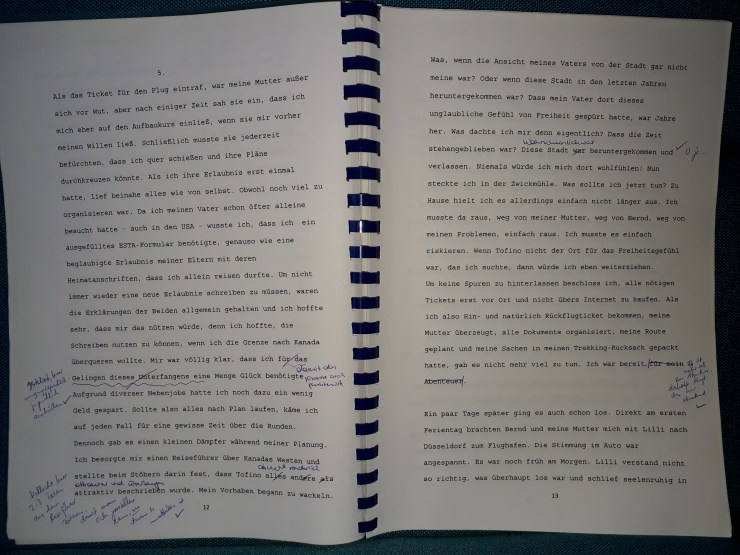 5.
Als das Ticket für den Flug eintraf, war meine Mutter außer
sich vor Wut, aber nach einiger Zeit sah sie ein, dass ich
mich eher auf den Aufbaukurs einließ, wenn sie mir vorher
meinen Willen ließ. Schließlich musste sie jederzeit
befürchten, dass ich quer schießen und ihre Pläne
durchkreuzen könnte. Als ich ihre Erlaubnis erst einmal
hatte, lief beinahe alles wie von selbst. Obwohl noch viel zu
organisieren war. Da ich meinen Vater schon öfter alleine
besucht hatte - auch in den USA - wusste ich, dass ich ein
ausgefülltes ESTA-Formular benötigte, genauso wie eine
beglaubigte Erlaubnis meiner Eltern mit deren
Heimatanschriften, dass ich allein reisen durfte. Um nicht
immer wieder eine neue Erlaubnis schreiben zu müssen, waren
die Erklärungen der Beiden allgemein gehalten und ich hoffte
sehr, dass mir das nützen würde, denn ich hoffte, die
Schreiben nutzen zu können, wenn ich die Grenze nach Kanada
überqueren wollte. Mir war völlig klar, dass ich für das
Gelingen dieses Unterfangens eine Menge Glück benötigte
Aufgrund diverser Nebenjobs hatte ich noch dazu ein wenig
Geld gespart. Sollte also alles nach Plan laufen, käme ich
auf jeden Fall für eine gewisse Zeit über die Runden.
Dennoch gab es einen kleinen Dämpfer während meiner Planung.
Ich besorgte mir einen Reiseführer über Kanadas Westen und
stellte beim Stöbern darin fest, dass Tofino alles andere als
attraktiv beschrieben wurde. Mein Vorhaben begann zu wackeln.
12
Was, wenn die Ansicht meines Vaters von der Stadt gar nicht
meine war? Oder wenn diese Stadt in den letzten Jahren
heruntergekommen war? Dass mein Vater dort dieses
unglaubliche Gefühl von Freiheit gespürt hatte, war Jahre
her. Was dachte ich mir denn eigentlich? Dass die Zeit
stehengeblieben war? Diese Stadt war heruntergekommen und
verlassen. Niemals würde ich mich dort wohlfühlen! Nun
steckte ich in der Zwickmühle. Was sollte ich jetzt tun? Zu
Hause hielt ich es allerdings einfach nicht länger aus. Ich
musste da raus, weg von meiner Mutter, weg von Bernd, weg von
meinen Problemen, einfach raus. Ich musste es einfach
riskieren. Wenn Tofino nicht der Ort für das Freiheitsgefühl
war, das ich suchte, dann würde ich eben weiterziehen.
Um keine Spuren zu hinterlassen beschloss ich, alle nötigen
Tickets erst vor Ort und nicht übers Internet zu kaufen. Als
ich also Hin- und natürlich Rückflugticket bekommen, meine
Mutter überzeugt, alle Dokumente organisiert, meine Route
geplant und meine Sachen in meinen Trekking-Rucksack gepackt
hatte, gab es nicht mehr viel zu tun. Ich war bereit für mein
Abenteuer.
Ein paar Tage später ging es auch schon los. Direkt am ersten
Ferientag brachten Bernd und meine Mutter mich mit Lilli nach
Düsseldorf zum Flughafen. Die Stimmung im Auto war
angespannt. Es war noch früh am Morgen. Lilli verstand nicht
so richtig, was überhaupt los war und schlief seelenruhig in
13